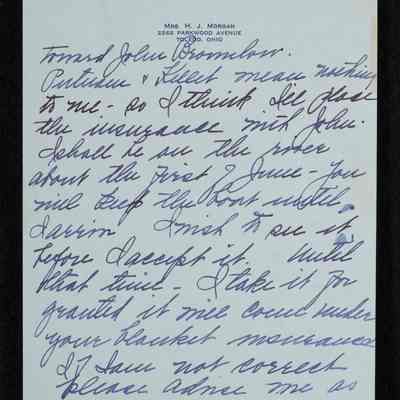 Mrs. H. J. Morgan
2268 Parkwood Avenue
Toledo, Ohio
Toward John Bromelow.
Putnam & Killet mean nothing
to me - so I think I'll place
the insurance with John.
I shall be on the river
about the first of June - You
will keep the boat until
I arrive I wish to see it
before I accept it. Until
that time - I take it for
granted it will come under
your blanket insurance
If I am not correct
please advise me as